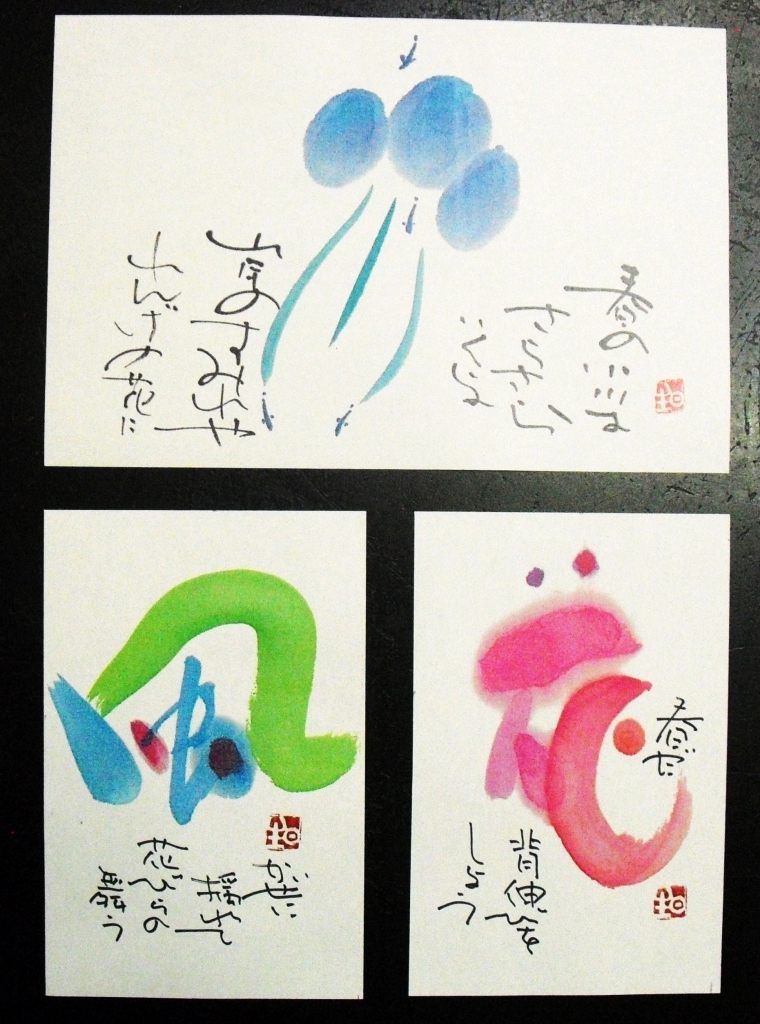 春の小川は
さらさら
いくよ
岸のすみれや
れんげの花に
風
かぜに
揺れて
花びらの
舞う
花
春だ
背伸びを
しよう